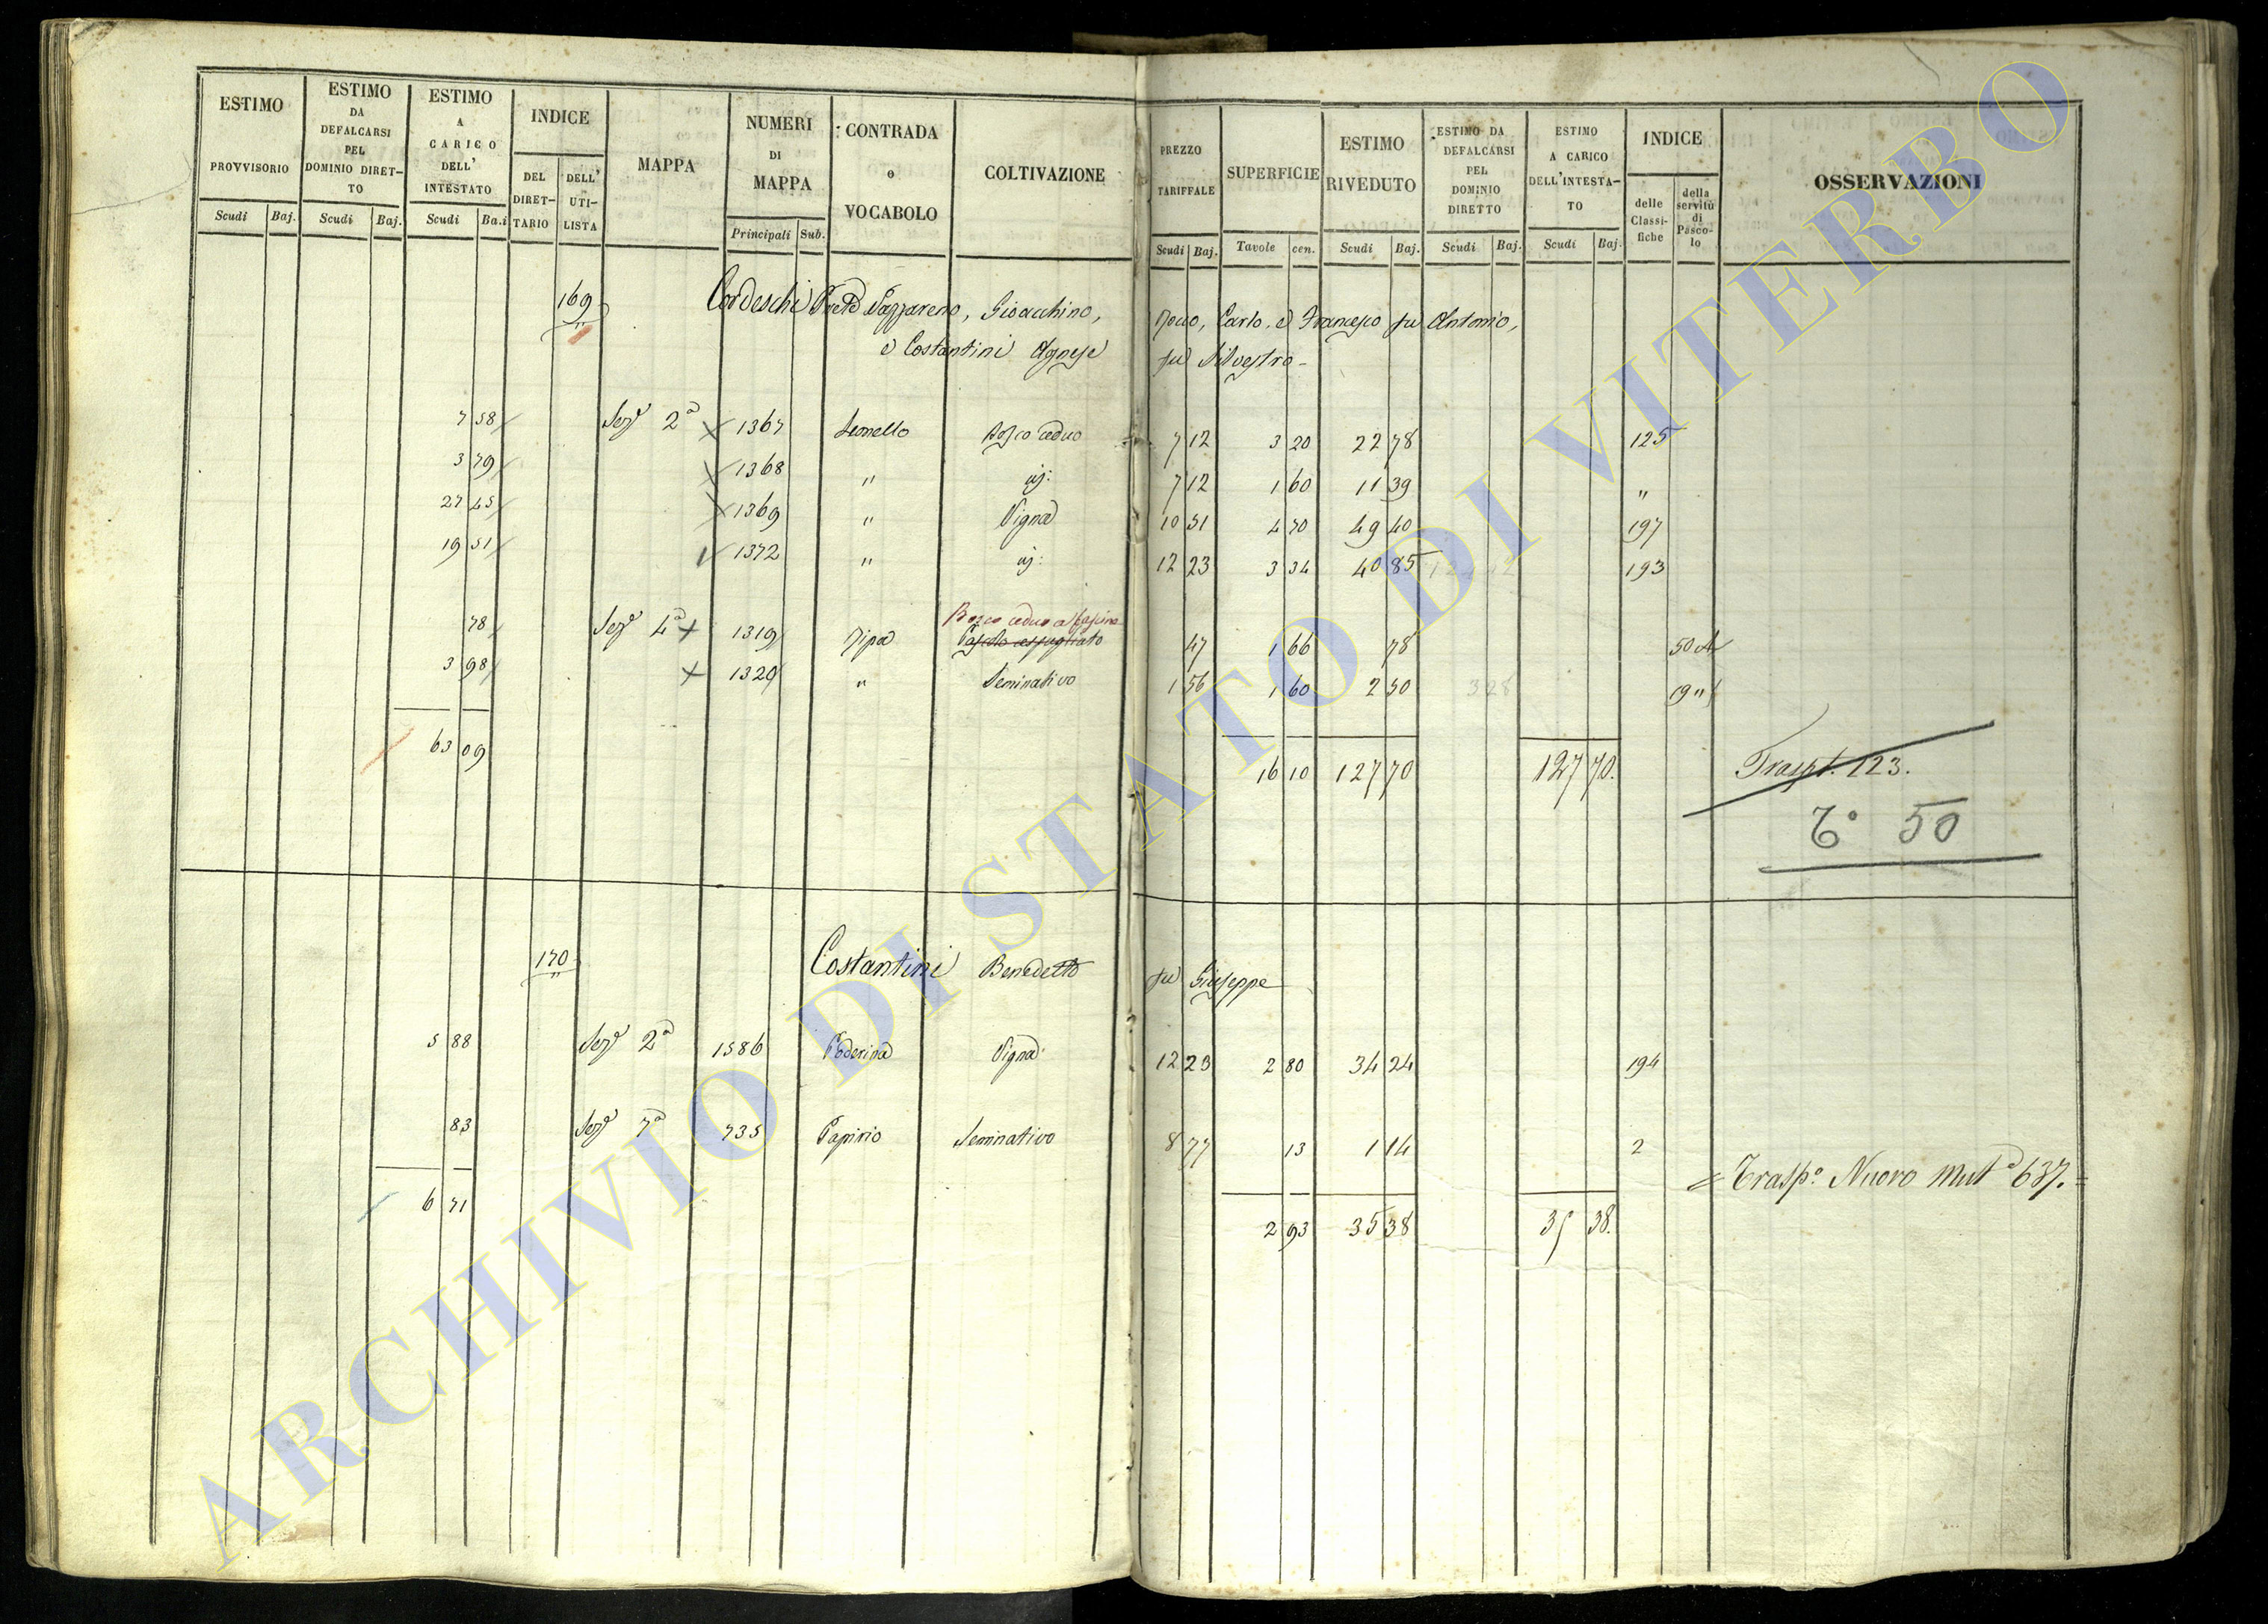 ESTIMO PROVVISORIO
Scudi Baj.
ESTIMO DA DEFALCARSI PEL DOMINIO DIRET-TO
Scudi Baj.
ESTIMO A CARICO DELL' INTESTATO
Scudi Ba.i
INDICE
DEL DIRET-TARIO
DELL' UTI-LISTA
MAPPA
NUMERI DI MAPPA
Principali Sub.
CONTRADA o VOCABOLO
COLTIVAZIONE
PREZZO TARIFFALE
Scudi Baj.
SUPERFICIE
Tavole cen.
ESTIMO RIVEDUTO
Scudi Baj.
ESTIMO DA DEFALCARSI PEL DOMINIO DIRETTO
Scudi Baj.
ESTIMO A CARICO DELL'INTESTA-TO
Scudi Baj.
INDICE
delle Classi-fiche
della servitù di Pasco-lo
OSSERVAZIONI
169 Cordeschi Nazzareno, Gioacchino, Rocco, Carlo, e Francesco fu Antonio,
e Costantini Agnese fu Silvestro
7 58 Sez 2a 1367 Leonello Bosco ceduo 7 12 3 20 22 78 125
3 79 1368 " " 7 12 1 60 11 39 "
27 45 1369 " Vigna 10 51 4 70 49 40 197
19 51 1372 " " 12 23 3 34 40 85 193
Bosco ceduo a fascina
78 Sez 4a 1319 Ripa Pascolo cespugliato 47 1 66 78 50 A
3 98 1320 " Seminativo 1 56 1 60 2 50 19 "
63 09 16 10 127 70 127 70.
Traspt. 123.
T° 50
170 Costantini Benedetto fu Giuseppe
5 88 Sez 2a 1586 Poderina Vigna 12 23 2 80 34 24 194
83 Sez 7a 735 Papirio Seminativo 8 77 13 1 14 2
= Trasp° Nuovo Mut a 637. =
6 71 2 93 35 38 35 38.
ARCHIVIO DI STATO DI VITERBO